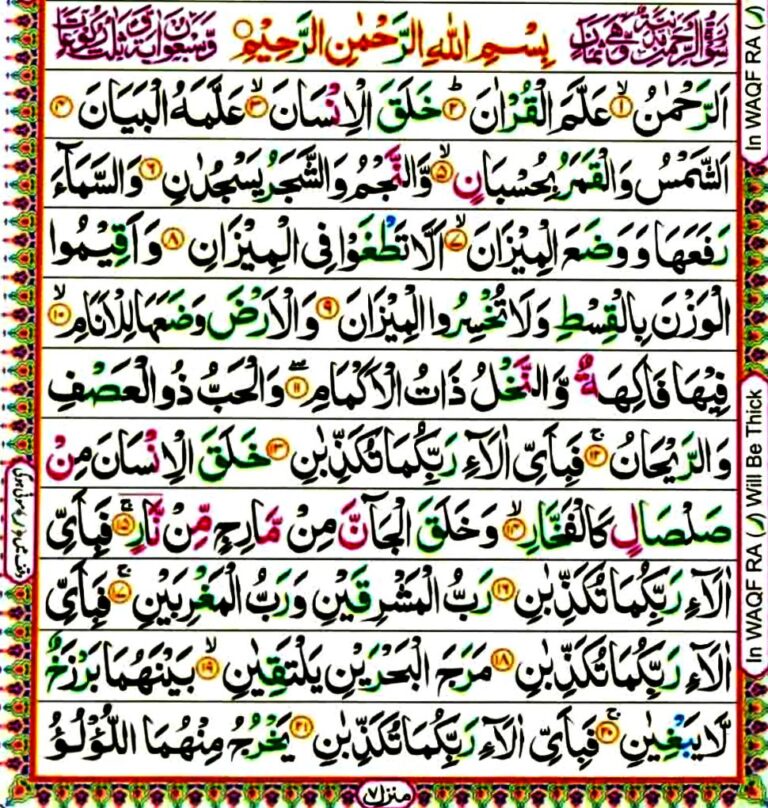 سورة الرحمن مدنية وهي ثمان بِسْمِ اللهِ الرَّحْمٰنِ الرَّحِيْمِ وسبعون اية وثلث ركوعات
اَلرَّحْمٰنُ ۙ﴿۱﴾ عَلَّمَ الْقُرْاٰنَ ؕ﴿۲﴾ خَلَقَ الْاِنْسَانَ ۙ﴿۳﴾ عَلَّمَهُ الْبَيَانَ ﴿۴﴾
اَلشَّمْسُ وَالْقَمَرُ بِحُسْبَانٍ ۙ﴿۵﴾ وَّالنَّجْمُ وَالشَّجَرُ يَسْجُدٰنِ ﴿۶﴾ وَالسَّمَآءَ
رَفَعَهَا وَوَضَعَ الْمِيْزَانَ ۙ﴿۷﴾ اَلَّا تَطْغَوْا فِى الْمِيْزَانِ ﴿۸﴾ وَاَقِيْمُوا
الْوَزْنَ بِالْقِسْطِ وَلَا تُخْسِرُوا الْمِيْزَانَ ﴿۹﴾ وَالْاَرْضَ وَضَعَهَا لِلْاَنَامِ ۙ﴿۱۰﴾
فِيْهَا فَاكِهَةٌ وَّالنَّخْلُ ذَاتُ الْاَكْمَامِ ﴿۱۱﴾ وَالْحَبُّ ذُو الْعَصْفِ
وَالرَّيْحَانُ ۚ﴿۱۲﴾ فَبِاَىِّ اٰلَآءِ رَبِّكُمَا تُكَذِّبٰنِ ﴿۱۳﴾ خَلَقَ الْاِنْسَانَ مِنْ
صَلْصَالٍ كَالْفَخَّارِ ۙ﴿۱۴﴾ وَخَلَقَ الْجَآنَّ مِنْ مَّارِجٍ مِّنْ نَّارٍ ۚ﴿۱۵﴾ فَبِاَىِّ
اٰلَآءِ رَبِّكُمَا تُكَذِّبٰنِ ﴿۱۶﴾ رَبُّ الْمَشْرِقَيْنِ وَرَبُّ الْمَغْرِبَيْنِ ۚ﴿۱۷﴾ فَبِاَىِّ
اٰلَآءِ رَبِّكُمَا تُكَذِّبٰنِ ﴿۱۸﴾ مَرَجَ الْبَحْرَيْنِ يَلْتَقِيٰنِ ۙ﴿۱۹﴾ بَيْنَهُمَا بَرْزَخٌ
لَّا يَبْغِيٰنِ ۚ﴿۲۰﴾ فَبِاَىِّ اٰلَآءِ رَبِّكُمَا تُكَذِّبٰنِ ﴿۲۱﴾ يَخْرُجُ مِنْهُمَا اللُّؤْلُؤُ
منزل ۷
In WAQF RA (ر)
In WAQF RA (ر) Will Be Thick